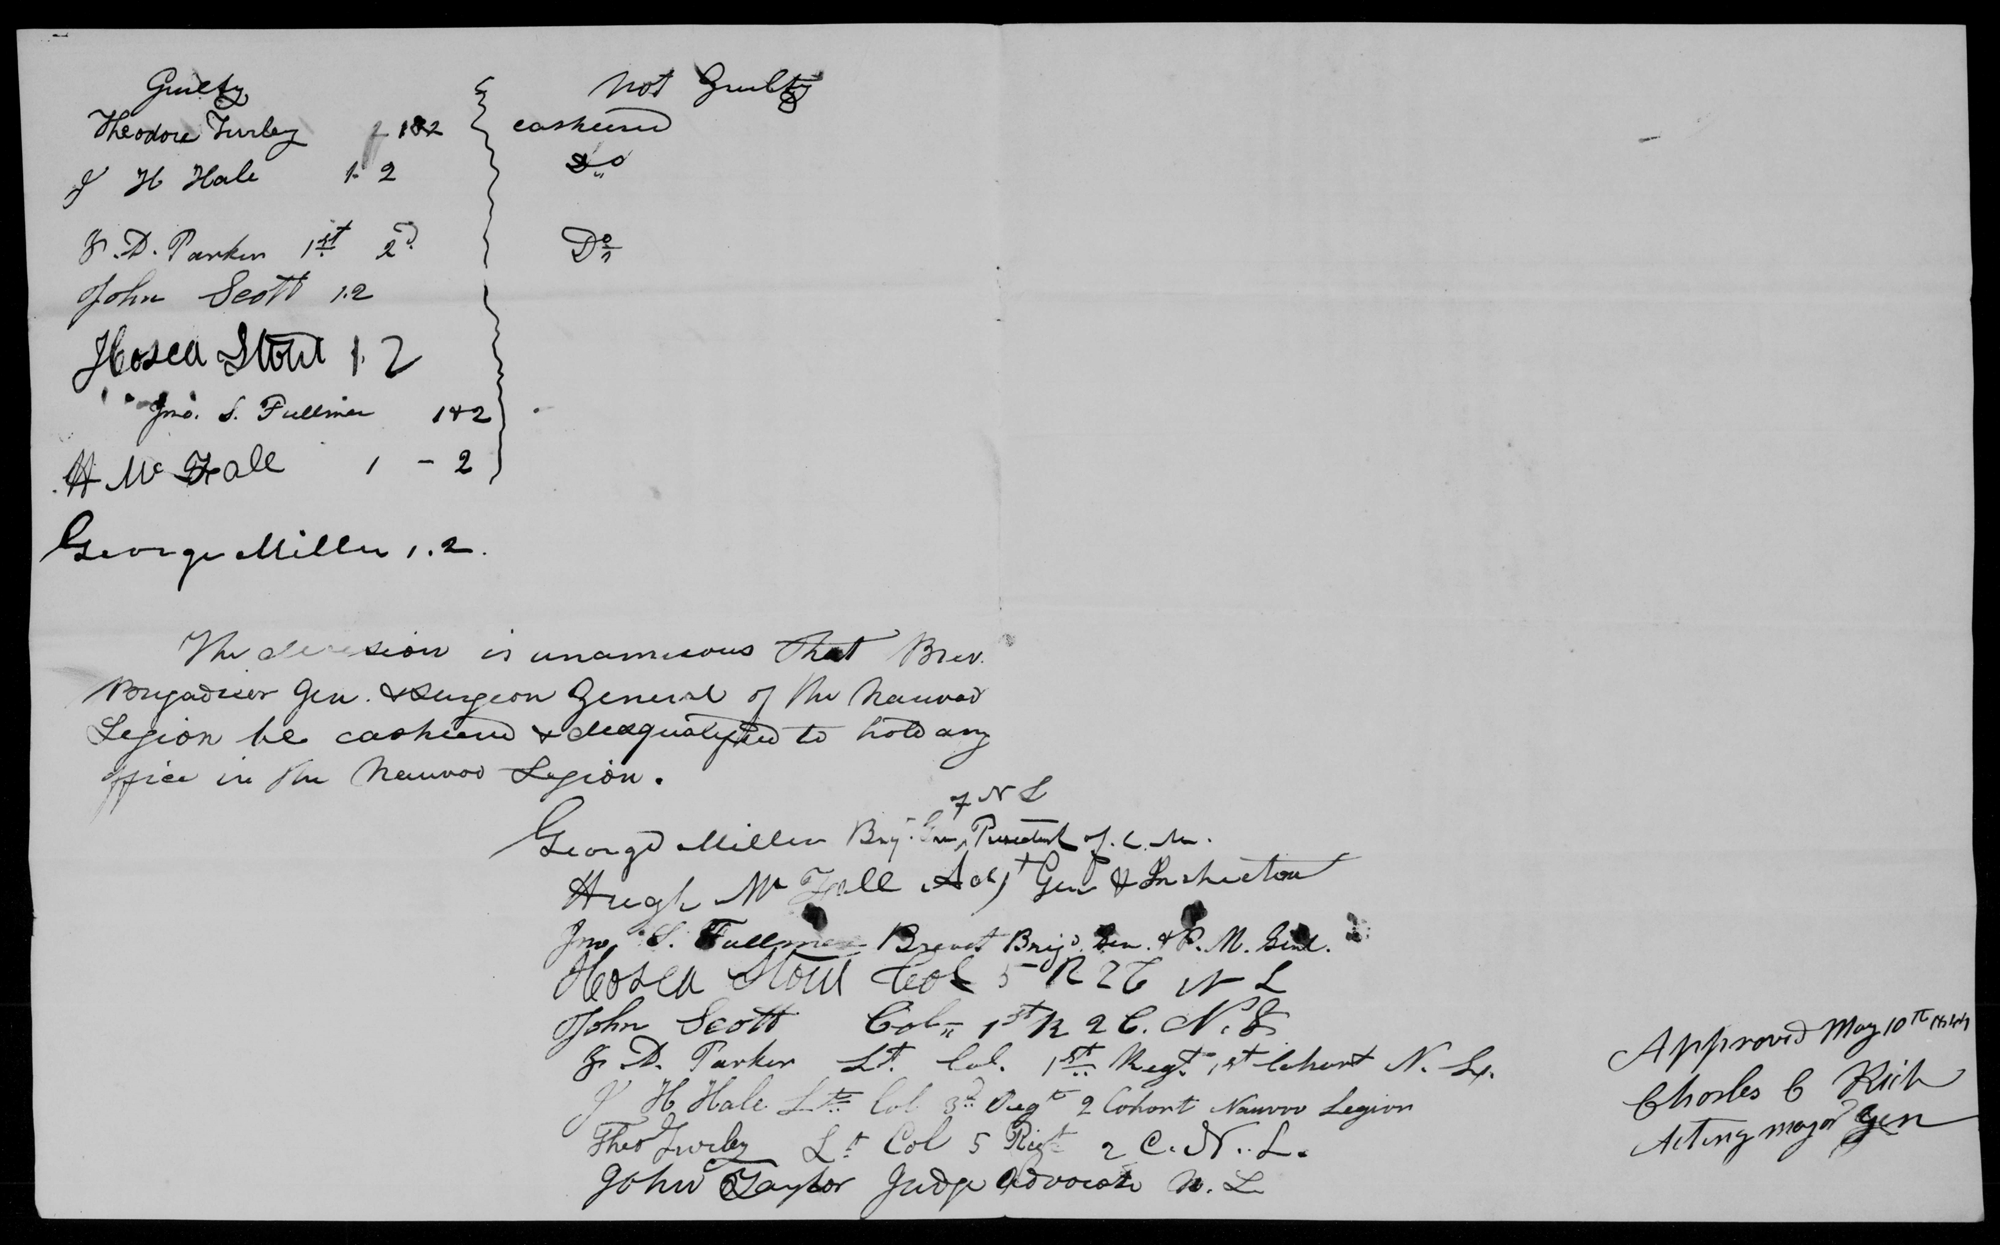 Guilty
Not Guilty
Theodore Turley 1&2 cashiered
J H Hale 1. 2 Do
J. D. Parker 1st 2d Do
John Scott 1.2
Hosea Stout 1. 2
Jno. S. Fullmer 1&2
H Mc Fall 1 - 2
George Miller 1. 2.
The decission is unamimous that Brev.
Brigadieer Gen. & Surgeon General of the Nauvoo
Legion be cashiered & disqualified to hold any
office in the Nauvoo Legion.
of N L
George Miller Brig. Gen, President of. C. M.
Hugh Mc Fall Adjt Gen & Inspector
Jno. S. Fullmer Brevet Brigd. Gen. & P. M. Genl.
Hosea Stout Col 5 R 2 C N L
John Scott Col. 1st R 2 C. N. L
J. D. Parker Lt. Col. 1st Regt. 1st Cohort N. L.
J H Hale Lt Col 3d Regt 2 Cohort Nauvoo Legion
Theo Turley Lt Col 5 Regt 2 C. N. L.
John Taylor Judge Advocate N. L
Approved May 10th 1844
Charles C Rich
Acting major Gen